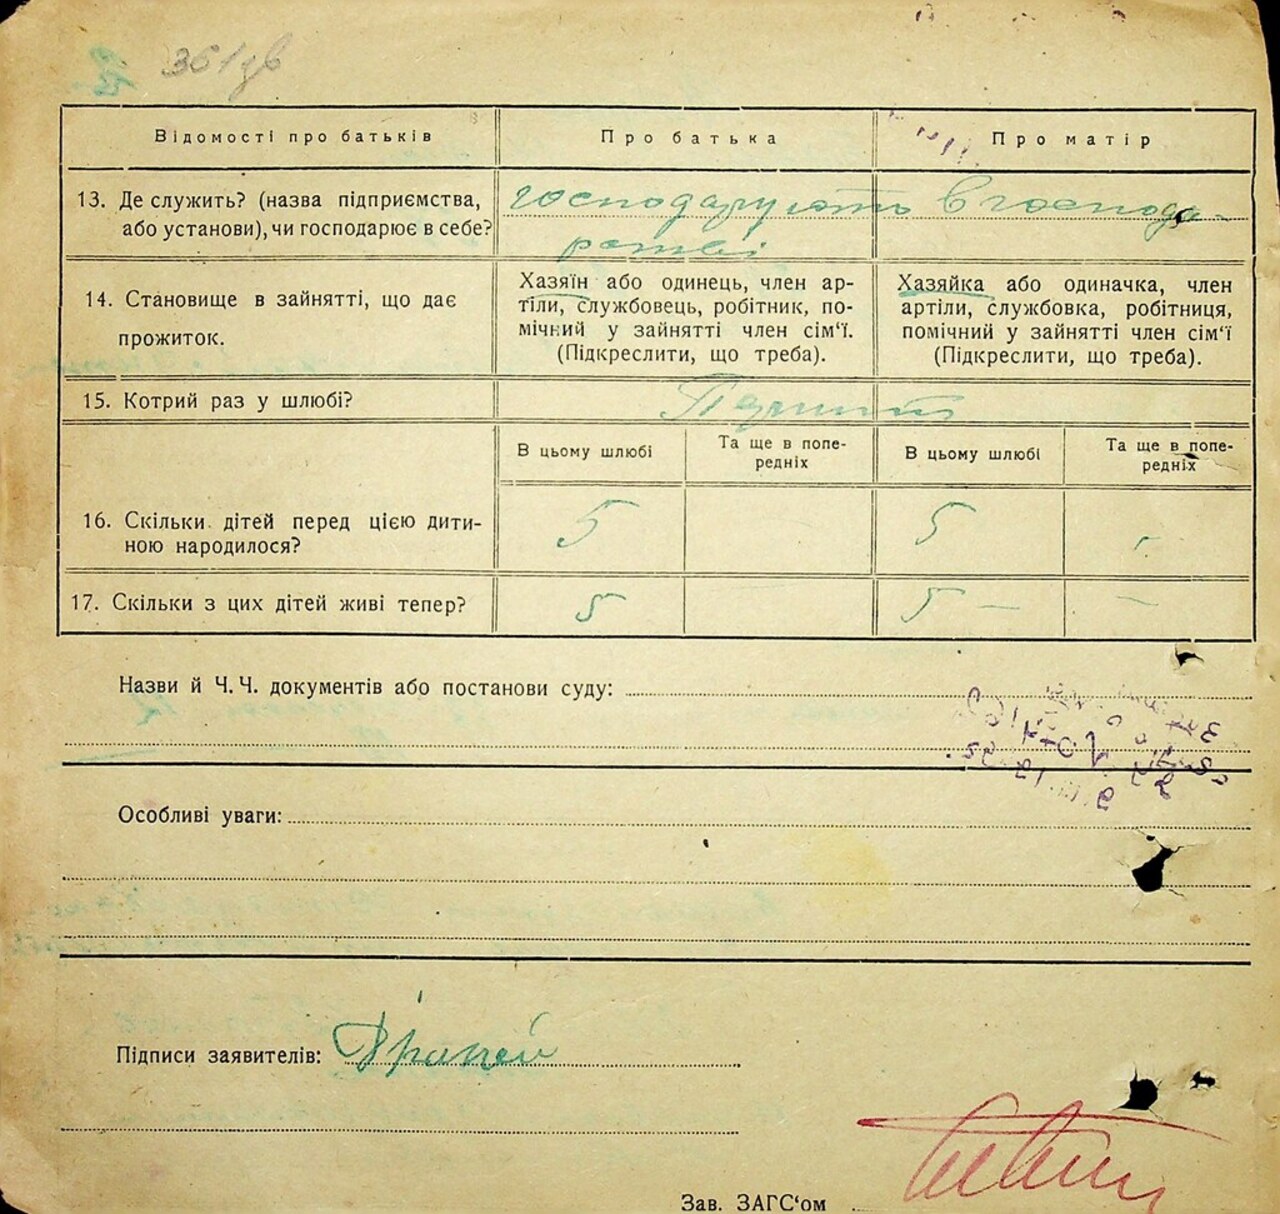 361зв
Відомості про батьків
Про батька
Про матір
13. Де служить? (назва підприємства,
або установи), чи господарює в себе?
господарують в господа-
рстві
14. Становище в зайнятті, що дає
прожиток.
Хазяїн або одинець, член ар-
тіли, службовець, робітник, по-
мічний у зайнятті член сім‘ї.
(Підкреслити, що треба).
Хазяйка або одиначка, член
артіли, службовка, робітниця,
помічний у зайнятті член сім‘ї
(Підкреслити, що треба).
15. Котрий раз у шлюбі?
В цьому шлюбі
Та ще в попе-
редніх
В цьому шлюбі
Та ще в попе-
редніх
16. Скільки дітей перед цією дити-
ною народилося?
5
5
17. Скільки з цих дітей живі тепер?
5
5 — —
Назви й Ч. Ч. документів або постанови суду:
Особливі уваги:
Підписи заявителів:
Зав. ЗАГС‘ом